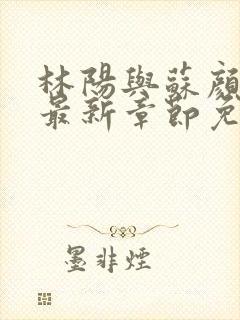 林陽與蘇顏
最新章節免
墨非煙